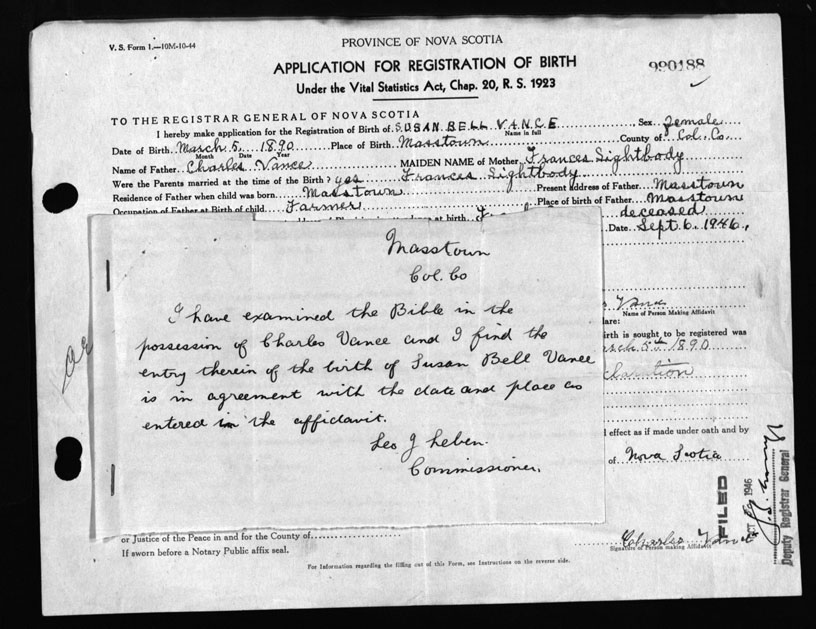 V. S. Form 1.—10M-10-44
PROVINCE OF NOVA SCOTIA
APPLICATION FOR REGISTRATION OF BIRTH
Under the Vital Statistics Act, Chap. 20, R. S. 1923
990188
TO THE REGISTRAR GENERAL OF NOVA SCOTIA
I hereby make application for the Registration of Birth of SUSAN BELL VANCE, Sex female
Name in full
Date of Birth March 5, 1890 Place of Birth Masstown County of Col. Co.
Month Date Year
Name of Father Charles Vance MAIDEN NAME of Mother Frances Lightbody
Were the Parents married at the time of the Birth? yes Frances Lightbody
Residence of Father when child was born Masstown Present address of Father Masstown
Occupation of Father at Birth of child Farmer Place of birth of Father Masstown
at birth deceased
Date Sept. 6. 1946.
Masstown
Col. Co
I have examined the Bible in the
possession of Charles Vance and I find the
entry therein of the birth of Susan Bell Vance
is in agreement with the date and place as
entered in the affidavit.
Leo J Leben.
Commissioner.
Vance
Name of Person Making Affidavit
lare:
irth is sought to be registered was
arch 5th 1890
effect as if made under oath and by
of Nova Scotia
FILED
1946
Deputy Registrar General
or Justice of the Peace in and for the County of
If sworn before a Notary Public affix seal.
Charles Vance
Signature of Person making Affidavit
For Information regarding the filling out of this Form, see Instructions on the reverse side.